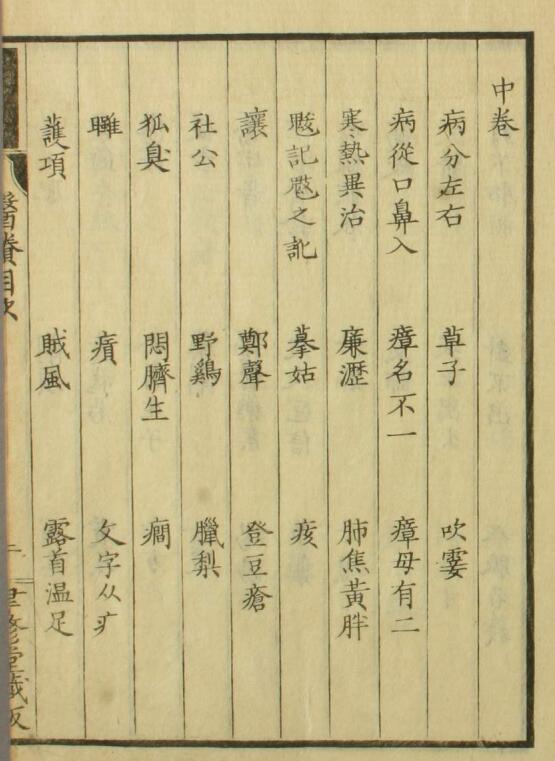 中卷
病分左右 草子 吹霎
病從口鼻入 瘴名不一 瘴母有二
寒熱異治 廉瀝 肺焦黃胖
摹姑 痎
讓 鄭聲 登豆瘡
社公 野鷄 臘梨
狐臭 悶臍生 癇
𤺺 文字从疒
護項 賊風 露首温足
醫賸目次
聿修堂藏板